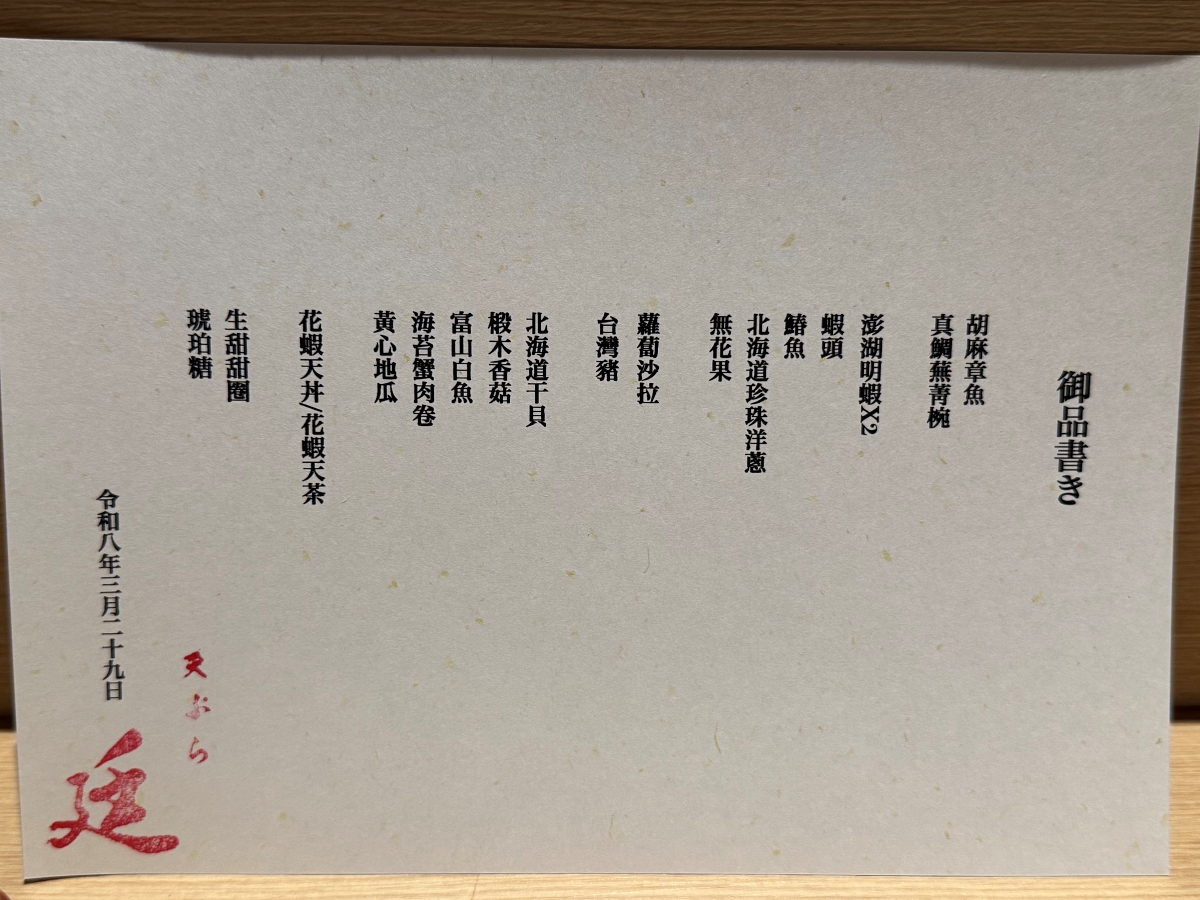 御品書き
胡麻章魚
真鯛蕪菁椀
澎湖明蝦X2
蝦頭
鰆魚
北海道珍珠洋蔥
無花果
蘿蔔沙拉
台灣豬
北海道干貝
椴木香菇
富山白魚
海苔蟹肉卷
黃心地瓜
花蝦天丼/花蝦天茶
生甜甜圈
琥珀糖
令和八年三月二十九日
天ぷら
廷